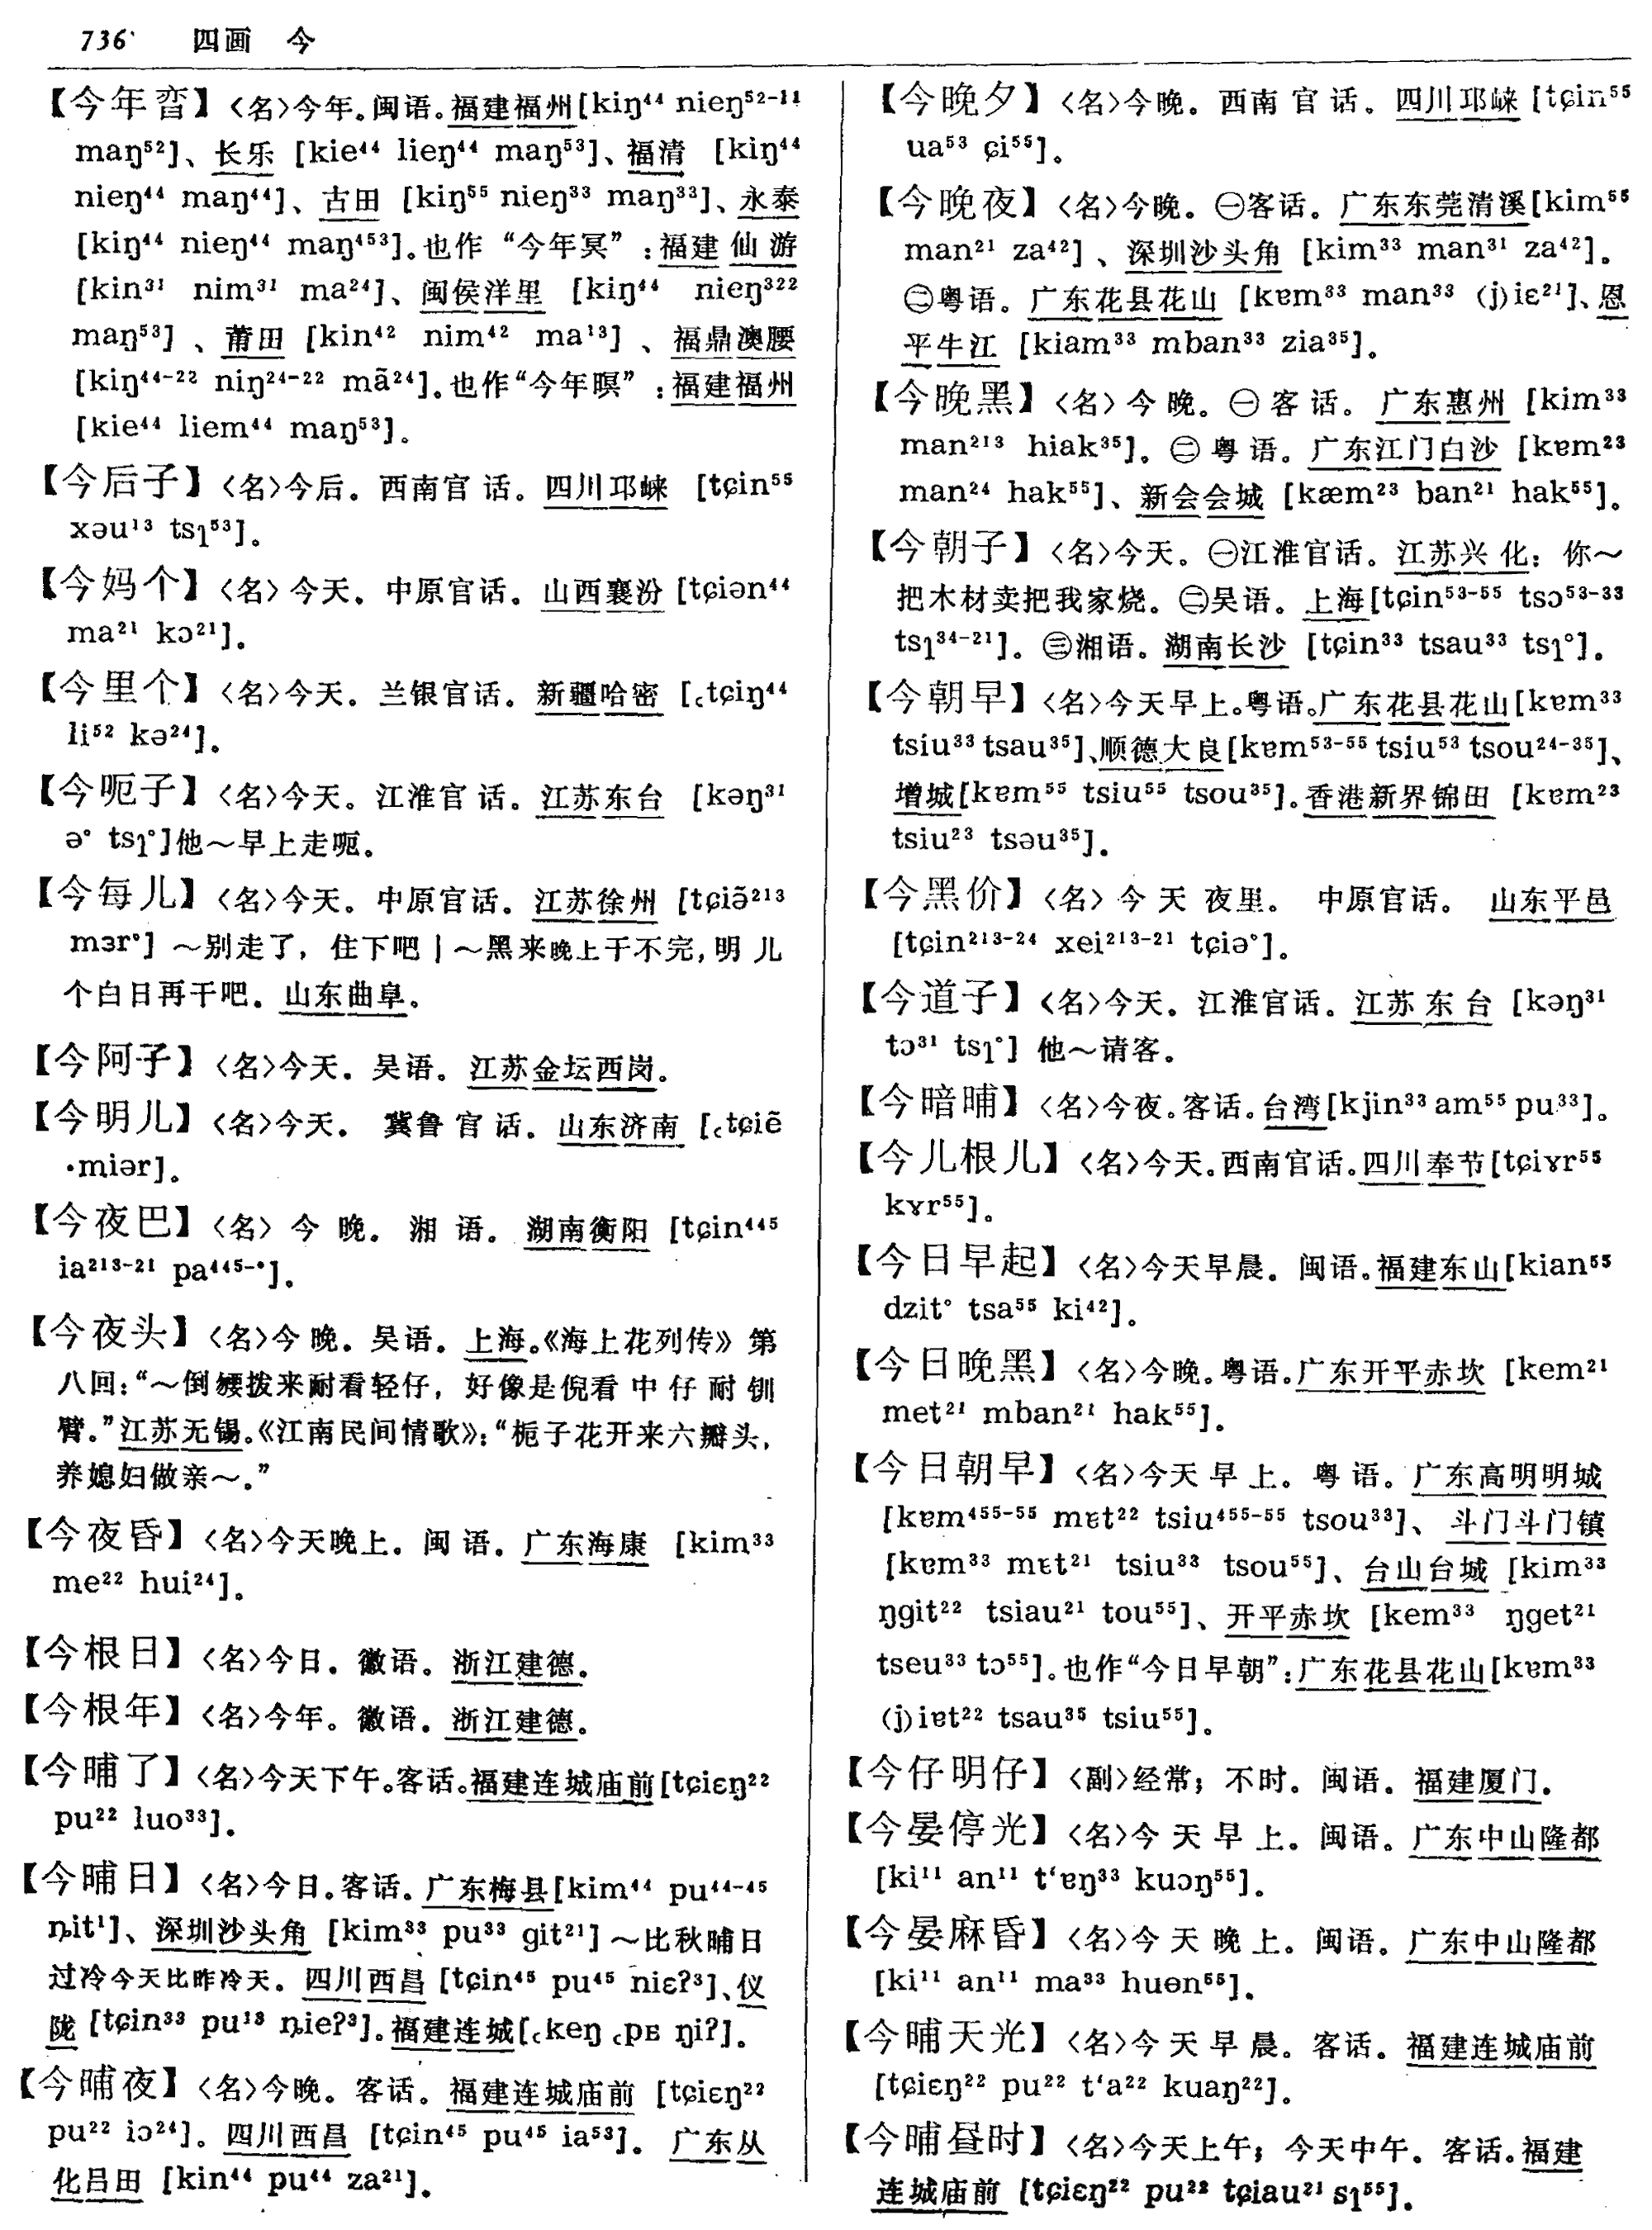 736 四画 今
【今年亩】〈名〉今年。闽语。福建福州[kiŋ⁴⁴ nieŋ⁵²⁻¹¹
maŋ⁵²]、长乐 [kie⁴⁴ lieŋ⁴⁴ maŋ⁵³]、福清 [kiŋ⁴⁴
nieŋ⁴⁴ maŋ⁴⁴]、古田 [kiŋ⁵⁵ nieŋ³³ maŋ³³]、永泰
[kiŋ⁴⁴ nieŋ⁴⁴ maŋ⁴⁵³]。也作“今年冥”:福建仙游
[kin³¹ nim³¹ ma²⁴]、闽侯洋里 [kiŋ⁴⁴ nieŋ³²²
maŋ⁵³]、莆田 [kin⁴² nim⁴² ma¹³]、福鼎澳腰
[kiŋ⁴⁴⁻²² niŋ²⁴⁻²² mã²⁴]。也作“今年暝”:福建福州
[kie⁴⁴ liem⁴⁴ maŋ⁵³]。
【今后子】〈名〉今后。西南官话。四川邛崃 [tɕin⁵⁵
xəu¹³ tsɿ⁵³]。
【今妈个】〈名〉今天。中原官话。山西襄汾 [tɕiən⁴⁴
ma²¹ kɔ²¹]。
【今里个】〈名〉今天。兰银官话。新疆哈密 [꜀tɕiŋ⁴⁴
li⁵² kə²⁴]。
【今呃子】〈名〉今天。江淮官话。江苏东台 [kəŋ³¹
ə° tsɿ°]他～早上走呃。
【今每儿】〈名〉今天。中原官话。江苏徐州 [tɕiə̃²¹³
mɜr°] ～别走了，住下吧 | ～黑来晚上干不完,明儿
个白日再干吧。山东曲阜。
【今阿子】〈名〉今天。吴语。江苏金坛西岗。
【今明儿】〈名〉今天。冀鲁官话。山东济南 [꜀tɕiẽ
·miər]。
【今夜巴】〈名〉今晚。湘语。湖南衡阳 [tɕin⁴⁴⁵
ia²¹³⁻²¹ pa⁴⁴⁵⁻•]。
【今夜头】〈名〉今晚。吴语。上海。《海上花列传》第
八回:“～倒㑚拨来耐看轻仔，好像是倪看中仔耐钏
臂。”江苏无锡。《江南民间情歌》:“栀子花开来六瓣头，
养媳妇做亲～。”
【今夜昏】〈名〉今天晚上。闽语。广东海康 [kim³³
me²² hui²⁴]。
【今根日】〈名〉今日。徽语。浙江建德。
【今根年】〈名〉今年。徽语。浙江建德。
【今晡了】〈名〉今天下午。客话。福建连城庙前[tɕiɛŋ²²
pu²² luo³³]。
【今晡日】〈名〉今日。客话。广东梅县[kim⁴⁴ pu⁴⁴⁻⁴⁵
ȵit¹]、深圳沙头角 [kim³³ pu³³ git²¹] ～比秋晡日
过冷今天比昨冷天。四川西昌 [tɕin⁴⁵ pu⁴⁵ niɛʔ³]、仪
陇 [tɕin³³ pu¹³ ȵieʔ³]。福建连城[꜀keŋ ꜀pᴇ ŋiʔ]。
【今晡夜】〈名〉今晚。客话。福建连城庙前 [tɕiɛŋ²²
pu²² iɔ²⁴]。四川西昌 [tɕin⁴⁵ pu⁴⁵ ia⁵³]。广东从
化吕田 [kin⁴⁴ pu⁴⁴ za²¹]。
【今晚夕】〈名〉今晚。西南官话。四川邛崃 [tɕin⁵⁵
ua⁵³ ɕi⁵⁵]。
【今晚夜】〈名〉今晚。㊀客话。广东东莞清溪[kim⁵⁵
man²¹ za⁴²]、深圳沙头角 [kim³³ man³¹ za⁴²]。
㊁粤语。广东花县花山 [kɐm³³ man³³ (j)iɛ²¹]、恩
平牛江 [kiam³³ mban³³ zia³⁵]。
【今晚黑】〈名〉今晚。㊀客话。广东惠州 [kim³³
man²¹³ hiak³⁵]。㊁粤语。广东江门白沙 [kɐm²³
man²⁴ hak⁵⁵]、新会会城 [kæm²³ ban²¹ hak⁵⁵]。
【今朝子】〈名〉今天。㊀江淮官话。江苏兴化: 你～
把木材卖把我家烧。㊁吴语。上海[tɕin⁵³⁻⁵⁵ tsɔ⁵³⁻³³
tsɿ³⁴⁻²¹]。㊂湘语。湖南长沙 [tɕin³³ tsau³³ tsɿ°]。
【今朝早】〈名〉今天早上。粤语。广东花县花山[kɐm³³
tsiu³³ tsau³⁵]、顺德大良[kɐm⁵³⁻⁵⁵ tsiu⁵³ tsou²⁴⁻³⁵]、
增城[kɐm⁵⁵ tsiu⁵⁵ tsou³⁵]。香港新界锦田 [kɐm²³
tsiu²³ tsəu³⁵]。
【今黑价】〈名〉今天夜里。中原官话。山东平邑
[tɕin²¹³⁻²⁴ xei²¹³⁻²¹ tɕiə°]。
【今道子】〈名〉今天。江淮官话。江苏东台 [kəŋ³¹
tɔ³¹ tsɿ°] 他～请客。
【今暗晡】〈名〉今夜。客话。台湾[kjin³³ am⁵⁵ pu³³]。
【今儿根儿】〈名〉今天。西南官话。四川奉节[tɕiɤr⁵⁵
kɤr⁵⁵]。
【今日早起】〈名〉今天早晨。闽语。福建东山[kian⁵⁵
dzit° tsa⁵⁵ ki⁴²]。
【今日晚黑】〈名〉今晚。粤语。广东开平赤坎 [kem²¹
met²¹ mban²¹ hak⁵⁵]。
【今日朝早】〈名〉今天早上。粤语。广东高明明城
[kɐm⁴⁵⁵⁻⁵⁵ mɐt²² tsiu⁴⁵⁵⁻⁵⁵ tsou³³]、斗门斗门镇
[kɐm³³ mɛt²¹ tsiu³³ tsou⁵⁵]、台山台城 [kim³³
ŋgit²² tsiau²¹ tou⁵⁵]、开平赤坎 [kem³³ ŋget²¹
tseu³³ tɔ⁵⁵]。也作“今日早朝”:广东花县花山[kɐm³³
(j)iɐt²² tsau³⁵ tsiu⁵⁵]。
【今仔明仔】〈副〉经常；不时。闽语。福建厦门。
【今晏停光】〈名〉今天早上。闽语。广东中山隆都
[ki¹¹ an¹¹ t‘ɐŋ³³ kuɔŋ⁵⁵]。
【今晏麻昏】〈名〉今天晚上。闽语。广东中山隆都
[ki¹¹ an¹¹ ma³³ huɵn⁵⁵]。
【今晡天光】〈名〉今天早晨。客话。福建连城庙前
[tɕiɛŋ²² pu²² t‘a²² kuaŋ²²]。
【今晡昼时】〈名〉今天上午；今天中午。客话。福建
连城庙前 [tɕiɛŋ²² pu²² tɕiau²¹ sɿ⁵⁵]。